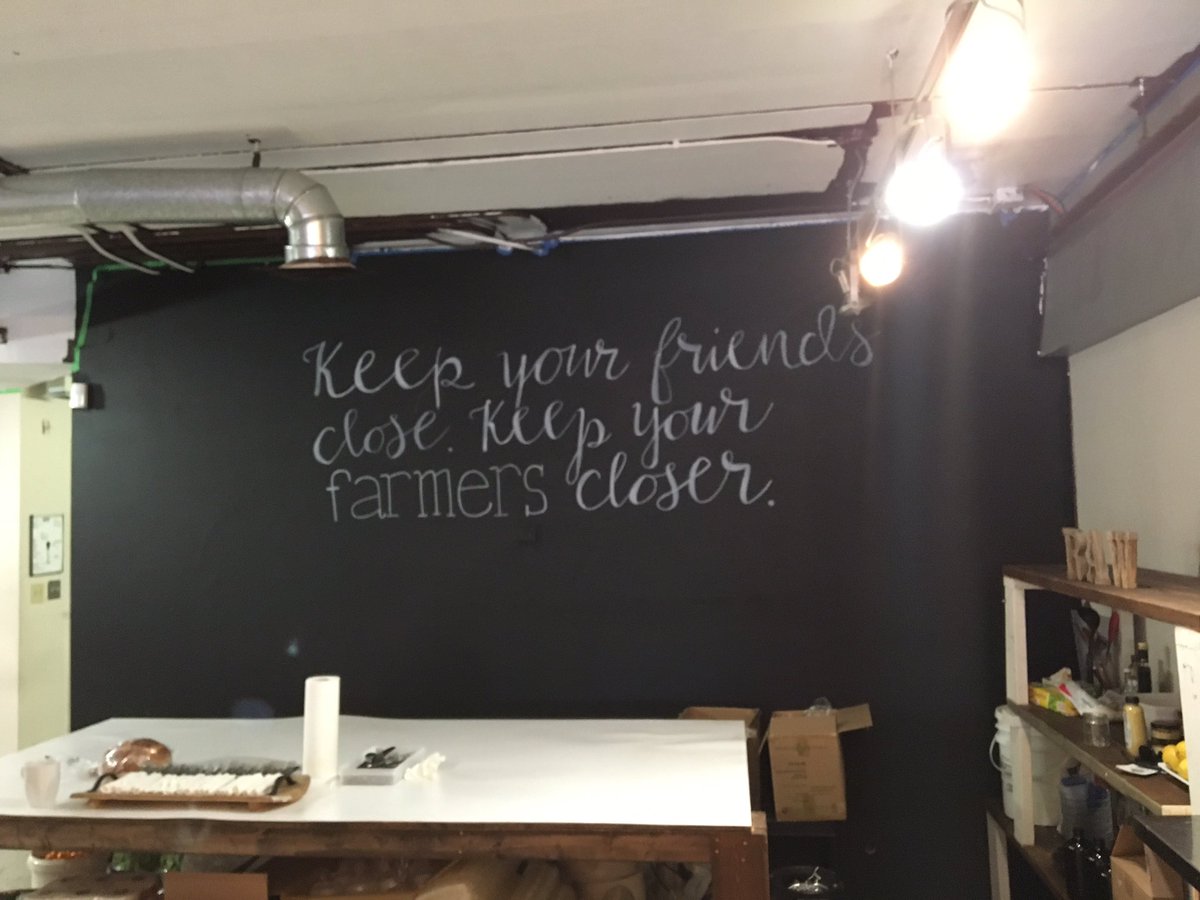 Keep your friends
close. Keep your
farmers closer.